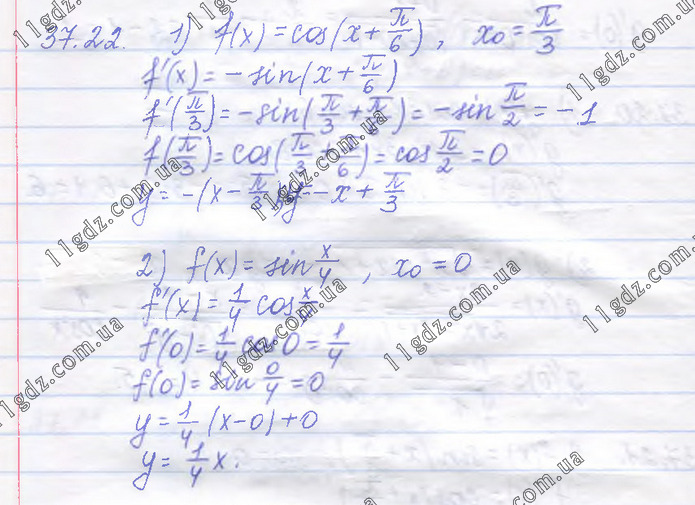 37.22. 1) f(x) = cos(x + π/6), x₀ = π/3
f'(x) = -sin(x + π/6)
f'(π/3) = -sin(π/3 + π/6) = -sin π/2 = -1
f(π/3) = cos(π/3 + π/6) = cos π/2 = 0
y = -(x - π/3) y = -x + π/3
2) f(x) = sin x/4, x₀ = 0
f'(x) = 1/4 cos x/4
f'(0) = 1/4 cos 0 = 1/4
f(0) = sin 0/4 = 0
y = 1/4 (x - 0) + 0
y = 1/4 x.
11gdz.com.ua
11gdz.com.ua
11gdz.com.ua
11gdz.com.ua
11gdz.com.ua
11gdz.com.ua
11gdz.com.ua
11gdz.com.ua
11gdz.com.ua